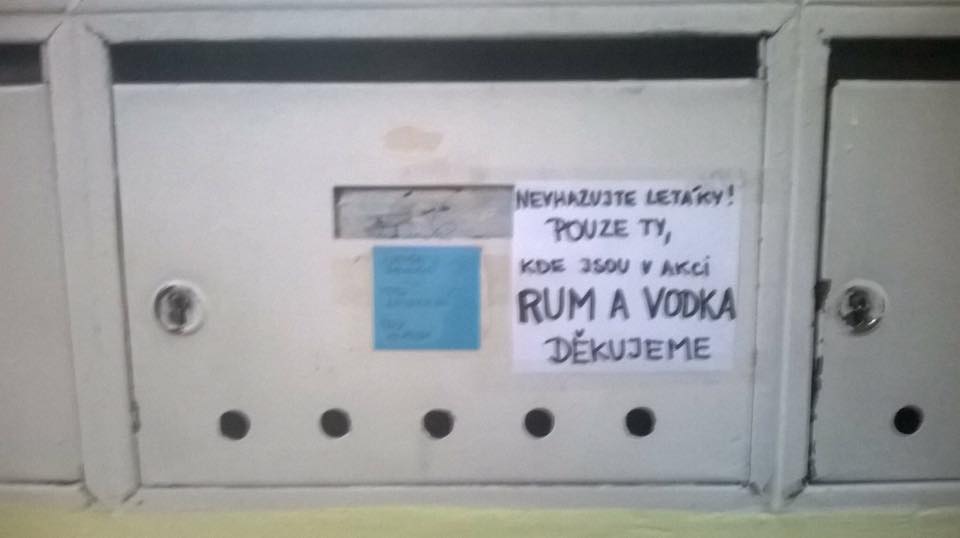 NEVHAZUJTE LETÁKY!
POUZE TY,
KDE JSOU V AKCI
RUM A VODKA
DĚKUJEME